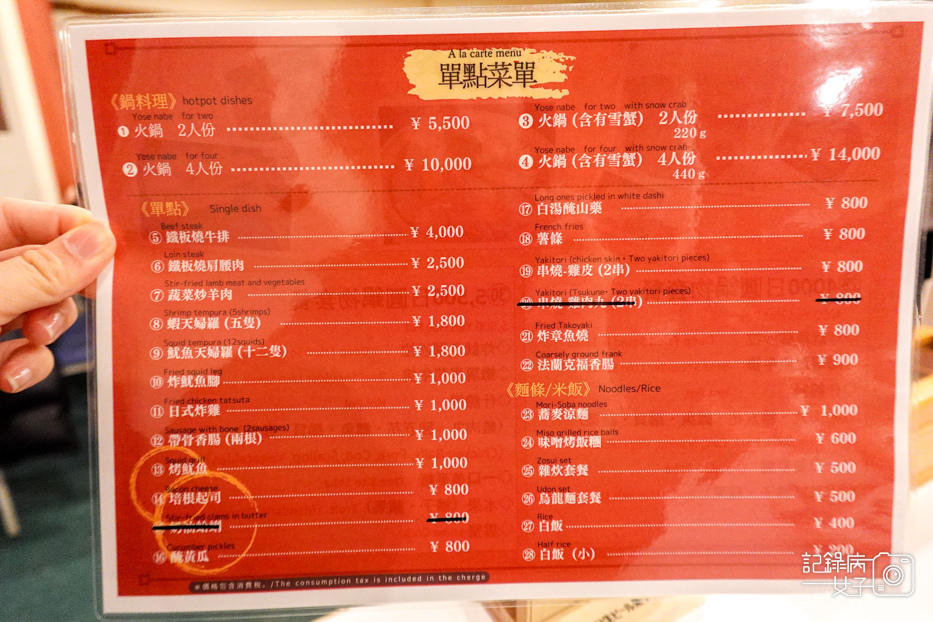 A la carte menu
單點菜單
《鍋料理》 hotpot dishes
Yose nabe for two
① 火鍋 2人份 ¥ 5,500
Yose nabe for four
② 火鍋 4人份 ¥ 10,000
Yose nabe for two with snow crab
③ 火鍋 (含有雪蟹) 2人份 ¥ 7,500
220 g
Yose nabe for four with snow crab
④ 火鍋 (含有雪蟹) 4人份 ¥ 14,000
440 g
《單點》 Single dish
Beef steak
⑤ 鐵板燒牛排 ¥ 4,000
Loin steak
⑥ 鐵板燒肩腰肉 ¥ 2,500
Stir-fried lamb meat and vegetables
⑦ 蔬菜炒羊肉 ¥ 2,500
Shrimp tempura (5shrimps)
⑧ 蝦天婦羅 (五隻) ¥ 1,800
Squid tempura (12squids)
⑨ 魷魚天婦羅 (十二隻) ¥ 1,800
Fried squid leg
⑩ 炸魷魚腳 ¥ 1,000
Fried chicken tatsuta
⑪ 日式炸雞 ¥ 1,000
Sausage with bone (2sausages)
⑫ 帶骨香腸 (兩根) ¥ 1,000
Squid grill
⑬ 烤魷魚 ¥ 1,000
Bacon cheese
⑭ 培根起司 ¥ 800
Stir-fried clams in butter
¥ 800
Cucumber pickles
⑯ 醃黃瓜 ¥ 800
Long ones pickled in white dashi
⑰ 白湯醃山藥 ¥ 800
French fries
⑱ 薯條 ¥ 800
Yakitori (chicken skin・Two yakitori pieces)
⑲ 串燒-雞皮 (2串) ¥ 800
Yakitori (Tsukune・Two yakitori pieces)
⑳ 串燒-雞肉丸 (2串) ¥ 800
Fried Takoyaki
㉑ 炸章魚燒 ¥ 800
Coarsely ground frank
㉒ 法蘭克福香腸 ¥ 900
《麵條/米飯》 Noodles/Rice
Mori-Soba noodles
㉓ 蕎麥涼麵 ¥ 1,000
Miso grilled rice balls
㉔ 味噌烤飯糰 ¥ 600
Zosui set
㉕ 雜炊套餐 ¥ 500
Udon set
㉖ 烏龍麵套餐 ¥ 500
Rice
㉗ 白飯 ¥ 400
Half rice
㉘ 白飯 (小)
※價格包含消費稅。/The consumption tax is included in the cherge
記錄病
女子